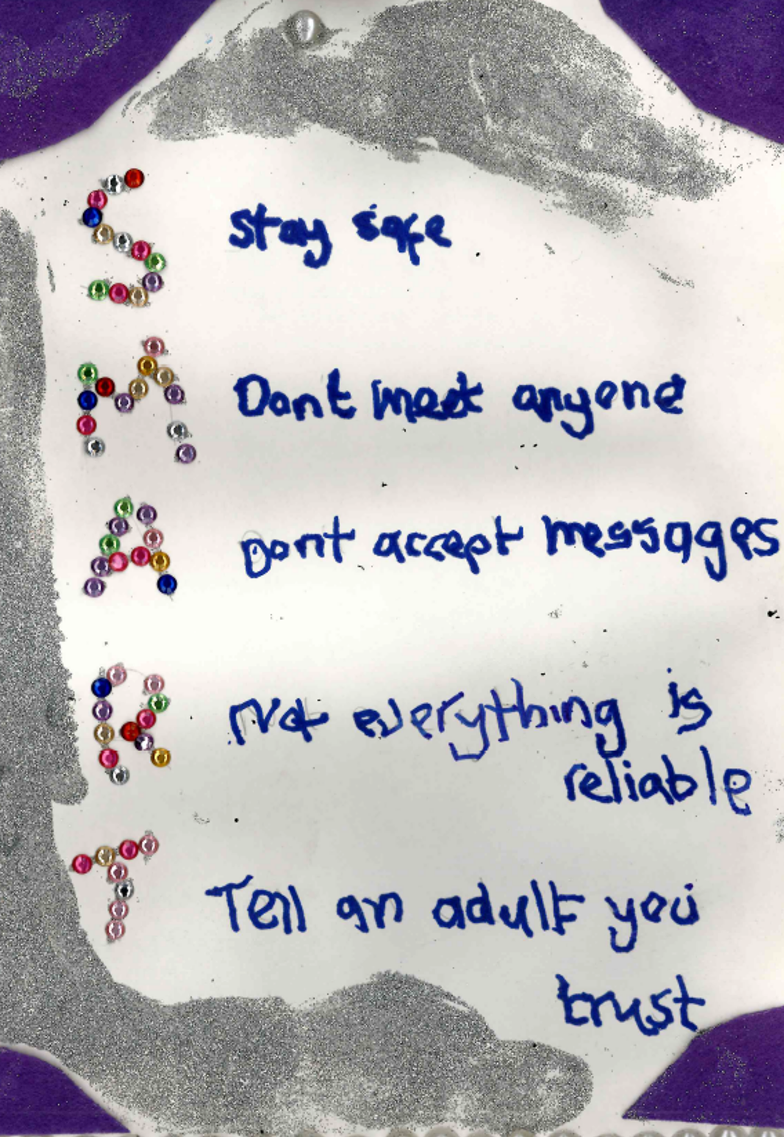 S stay safe
M Dont meet anyone
A Dont accept messages
R Not everything is
reliable
T Tell an adult you
trust